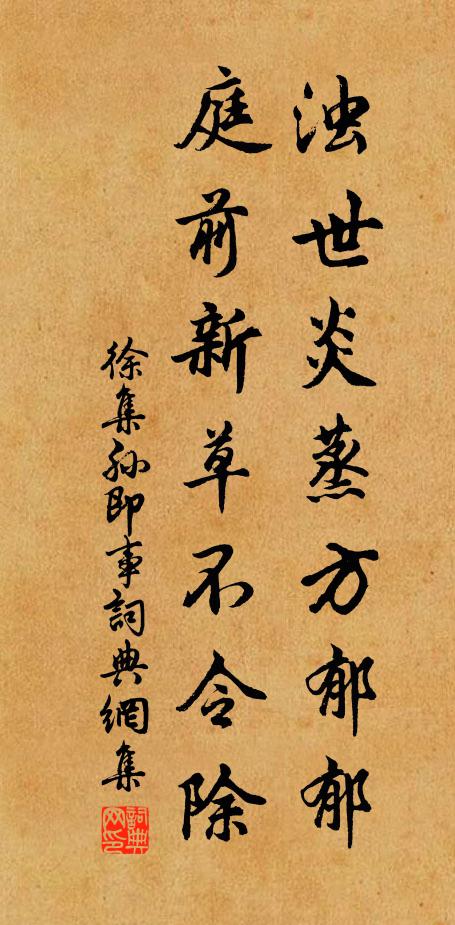 浊世炎蒸方郁郁
庭前新草不令除
徐集孙即事詞典網集
詞典网印